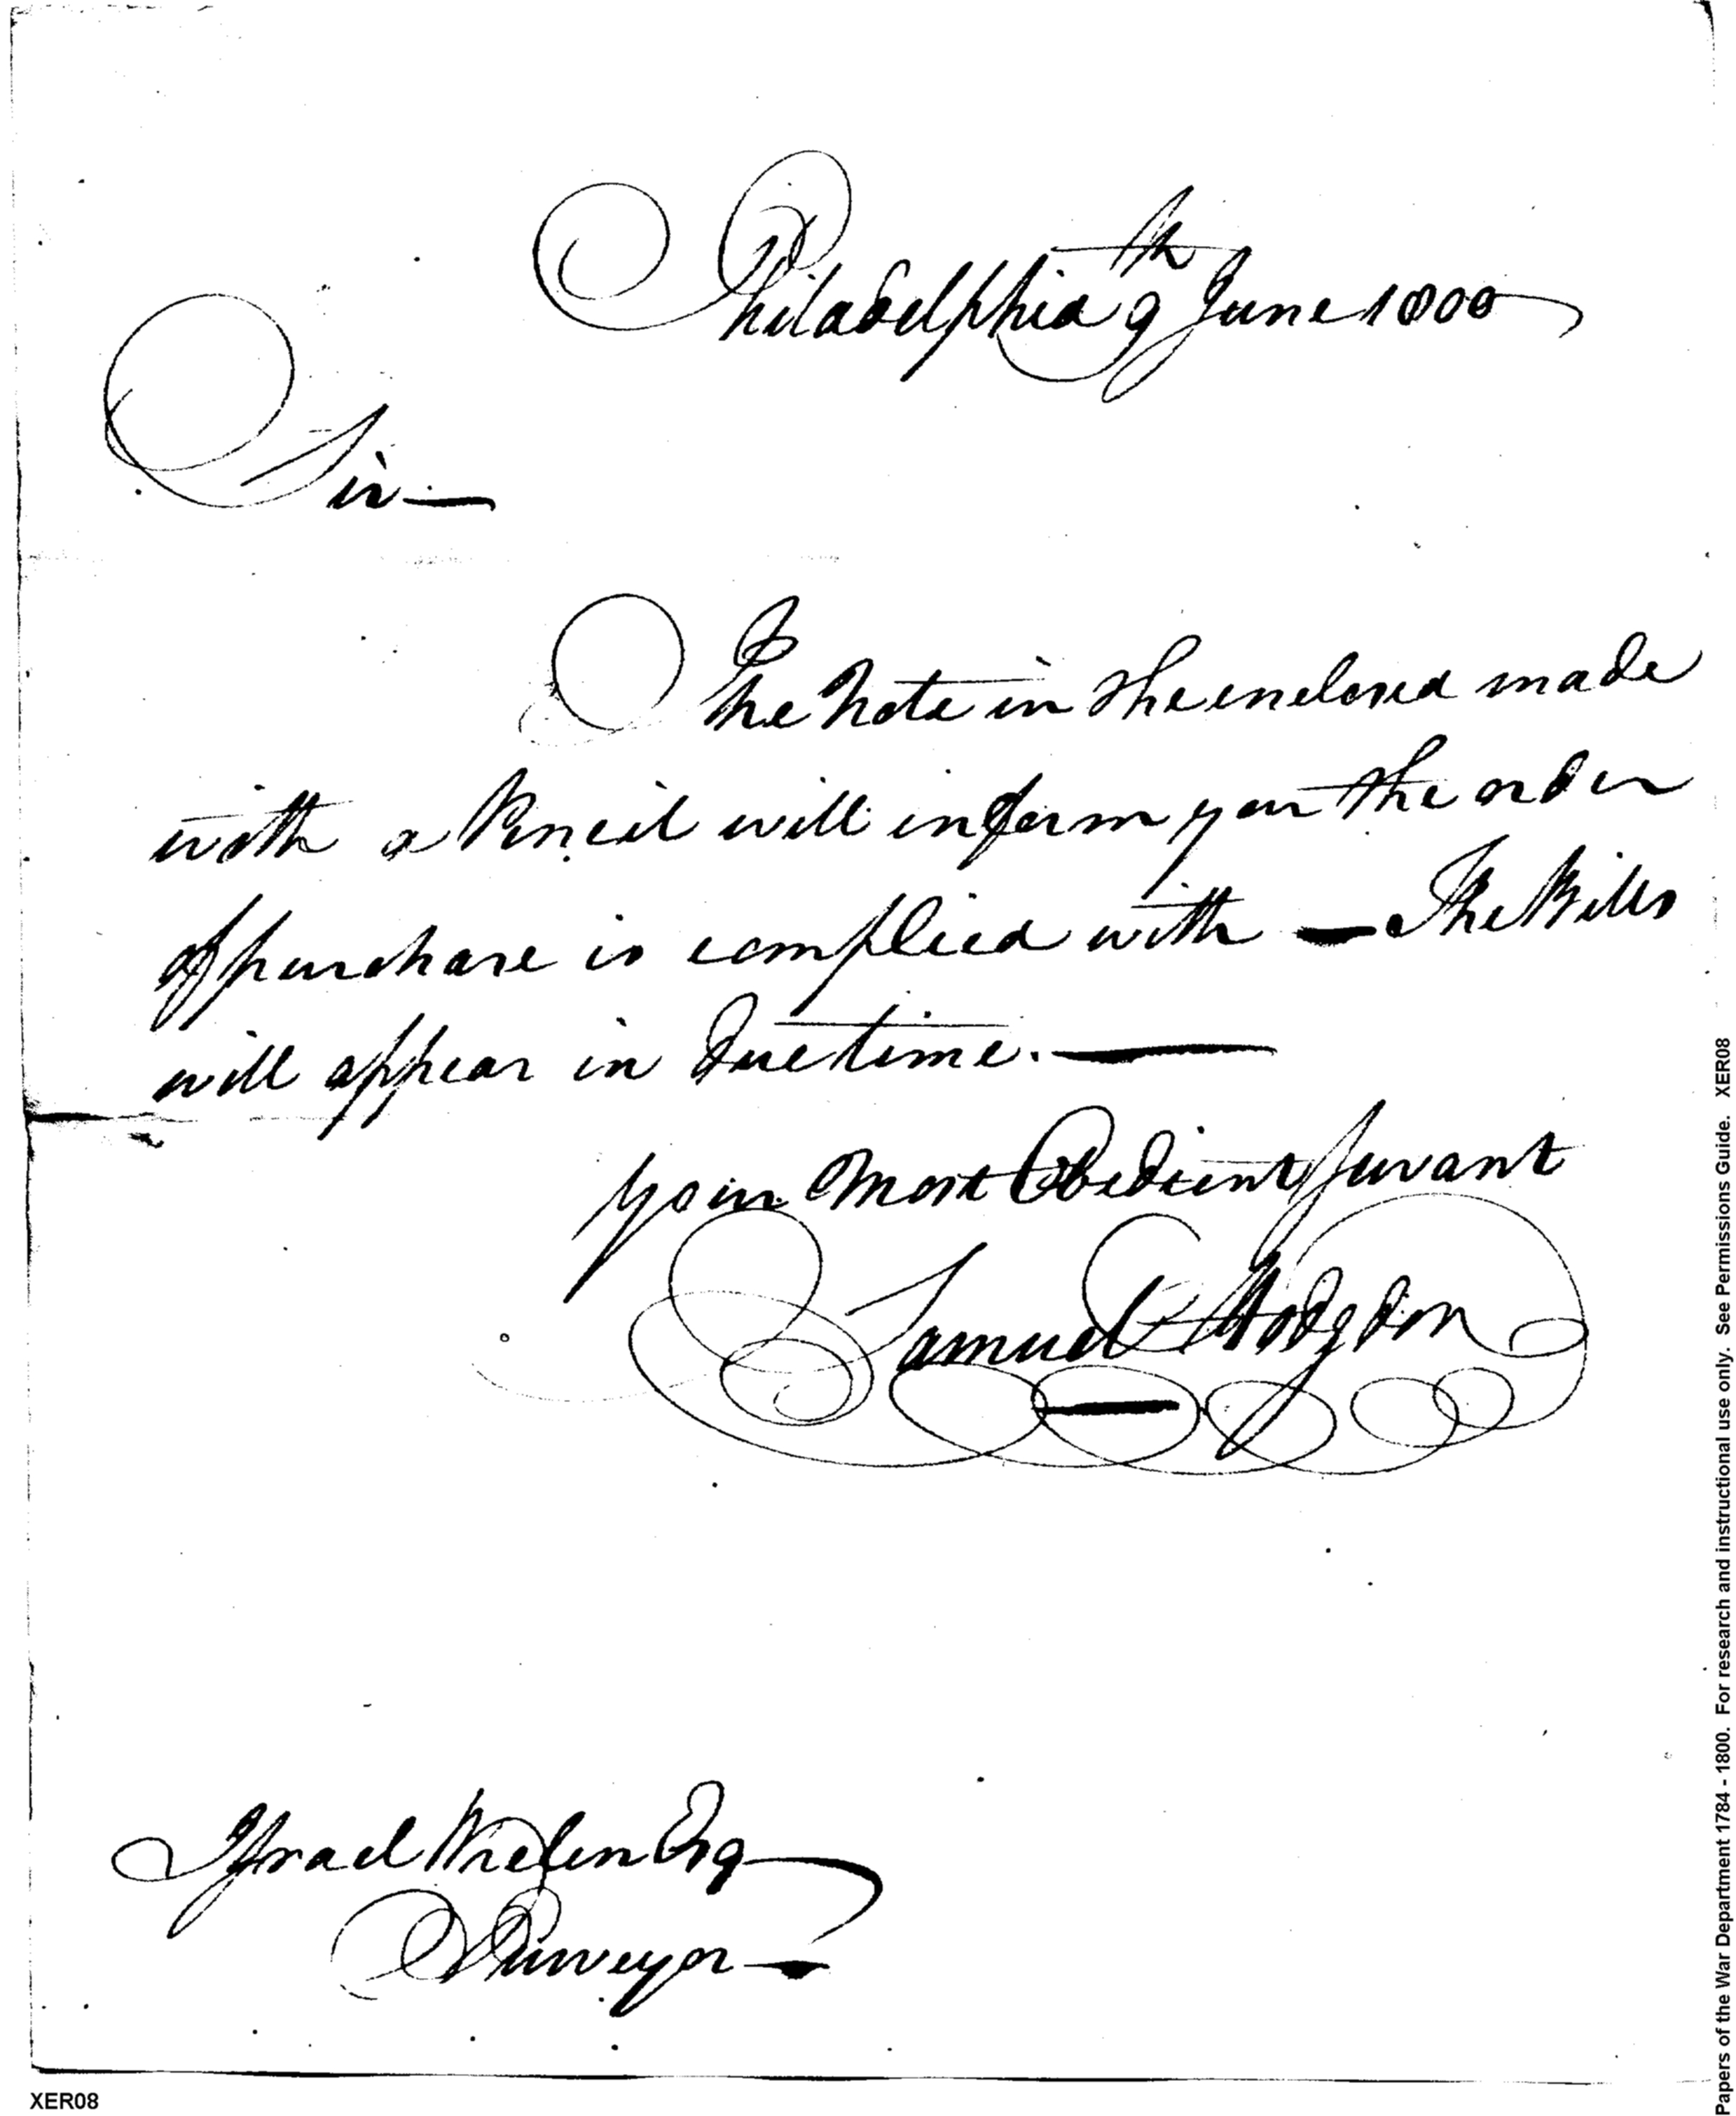 Philadelphia 9th June 1800
Sir —
The Note in the enclosed made
with a Pencil will inform you the order
of purchase is complied with — The Bills
will appear in due time. —
Your Most Obedient Servant
Samuel Hodgdon
Israel Whelen Esq
Purveyor —
XER08
Papers of the War Department 1784 - 1800. For research and instructional use only. See Permissions Guide. XER08